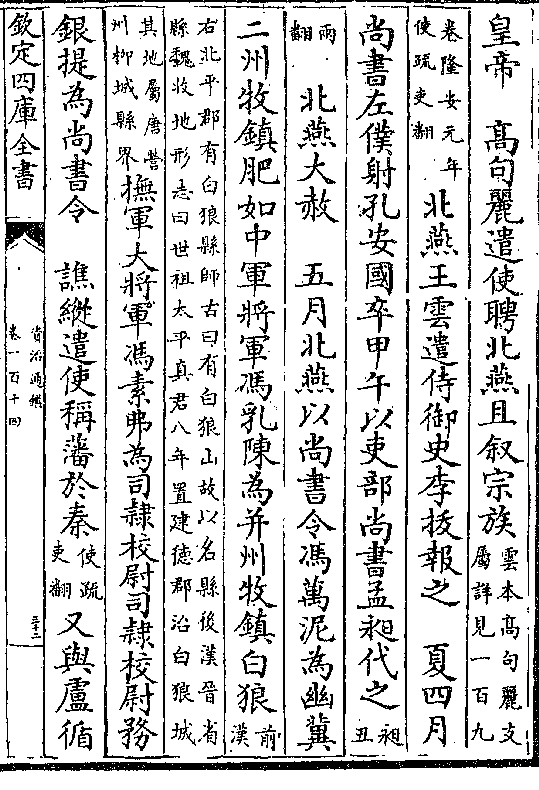 皇帝　高句麗遣使聘北燕且叙宗族雲本高句麗支屬詳見一百九
卷隆安元年使疏吏翻北燕王雲遣侍御史李拔報之　夏四月
尚書左僕射孔安國卒甲午以吏部尚書孟昶代之昶丑
兩翻　北燕大赦　五月北燕以尚書令馮萬泥為幽冀
二州牧鎮肥如中軍將軍馮乳陳為并州牧鎮白狼前漢
右北平郡有白狼縣師古曰有白狼山故以名縣後漢晉省縣魏收地形志曰世祖太平真君八年置建德郡治白狼城
其地屬唐營州柳城縣界撫軍大將軍馮素弗為司隸校尉司隸校尉務
銀提為尚書令　譙縱遣使稱藩於秦使疏吏翻又與盧循
欽定四庫全書
資治通鑑
卷一百十四
三十三